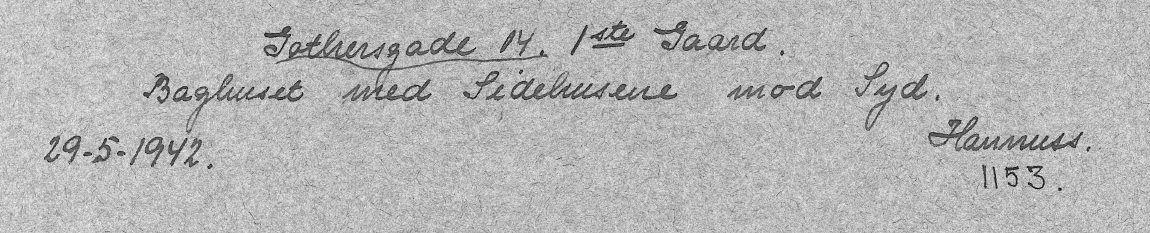 Gothersgade 14. 1ste Gaard.
Baghuset med Sidehusene mod Syd.
29-5-1942.
Hannuss.
1153.